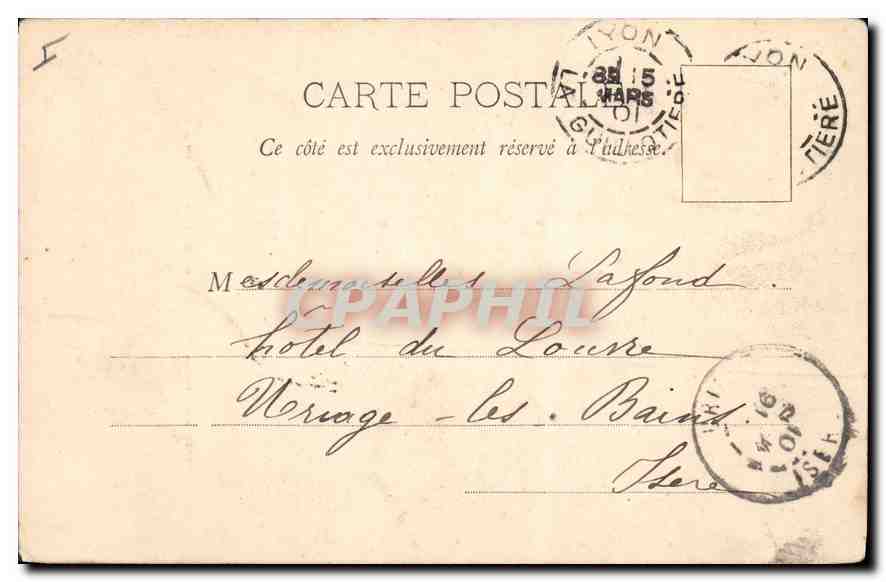 LYON
15
MARS
01
LA GUILLOTIERE
YON
TIERE
CARTE POSTALE
Ce côté est exclusivement réservé à l'adresse.
Mesdemoiselles Lafond
CPAPHIL
hôtel du Louvre
Uriage-les-Bains
Isere